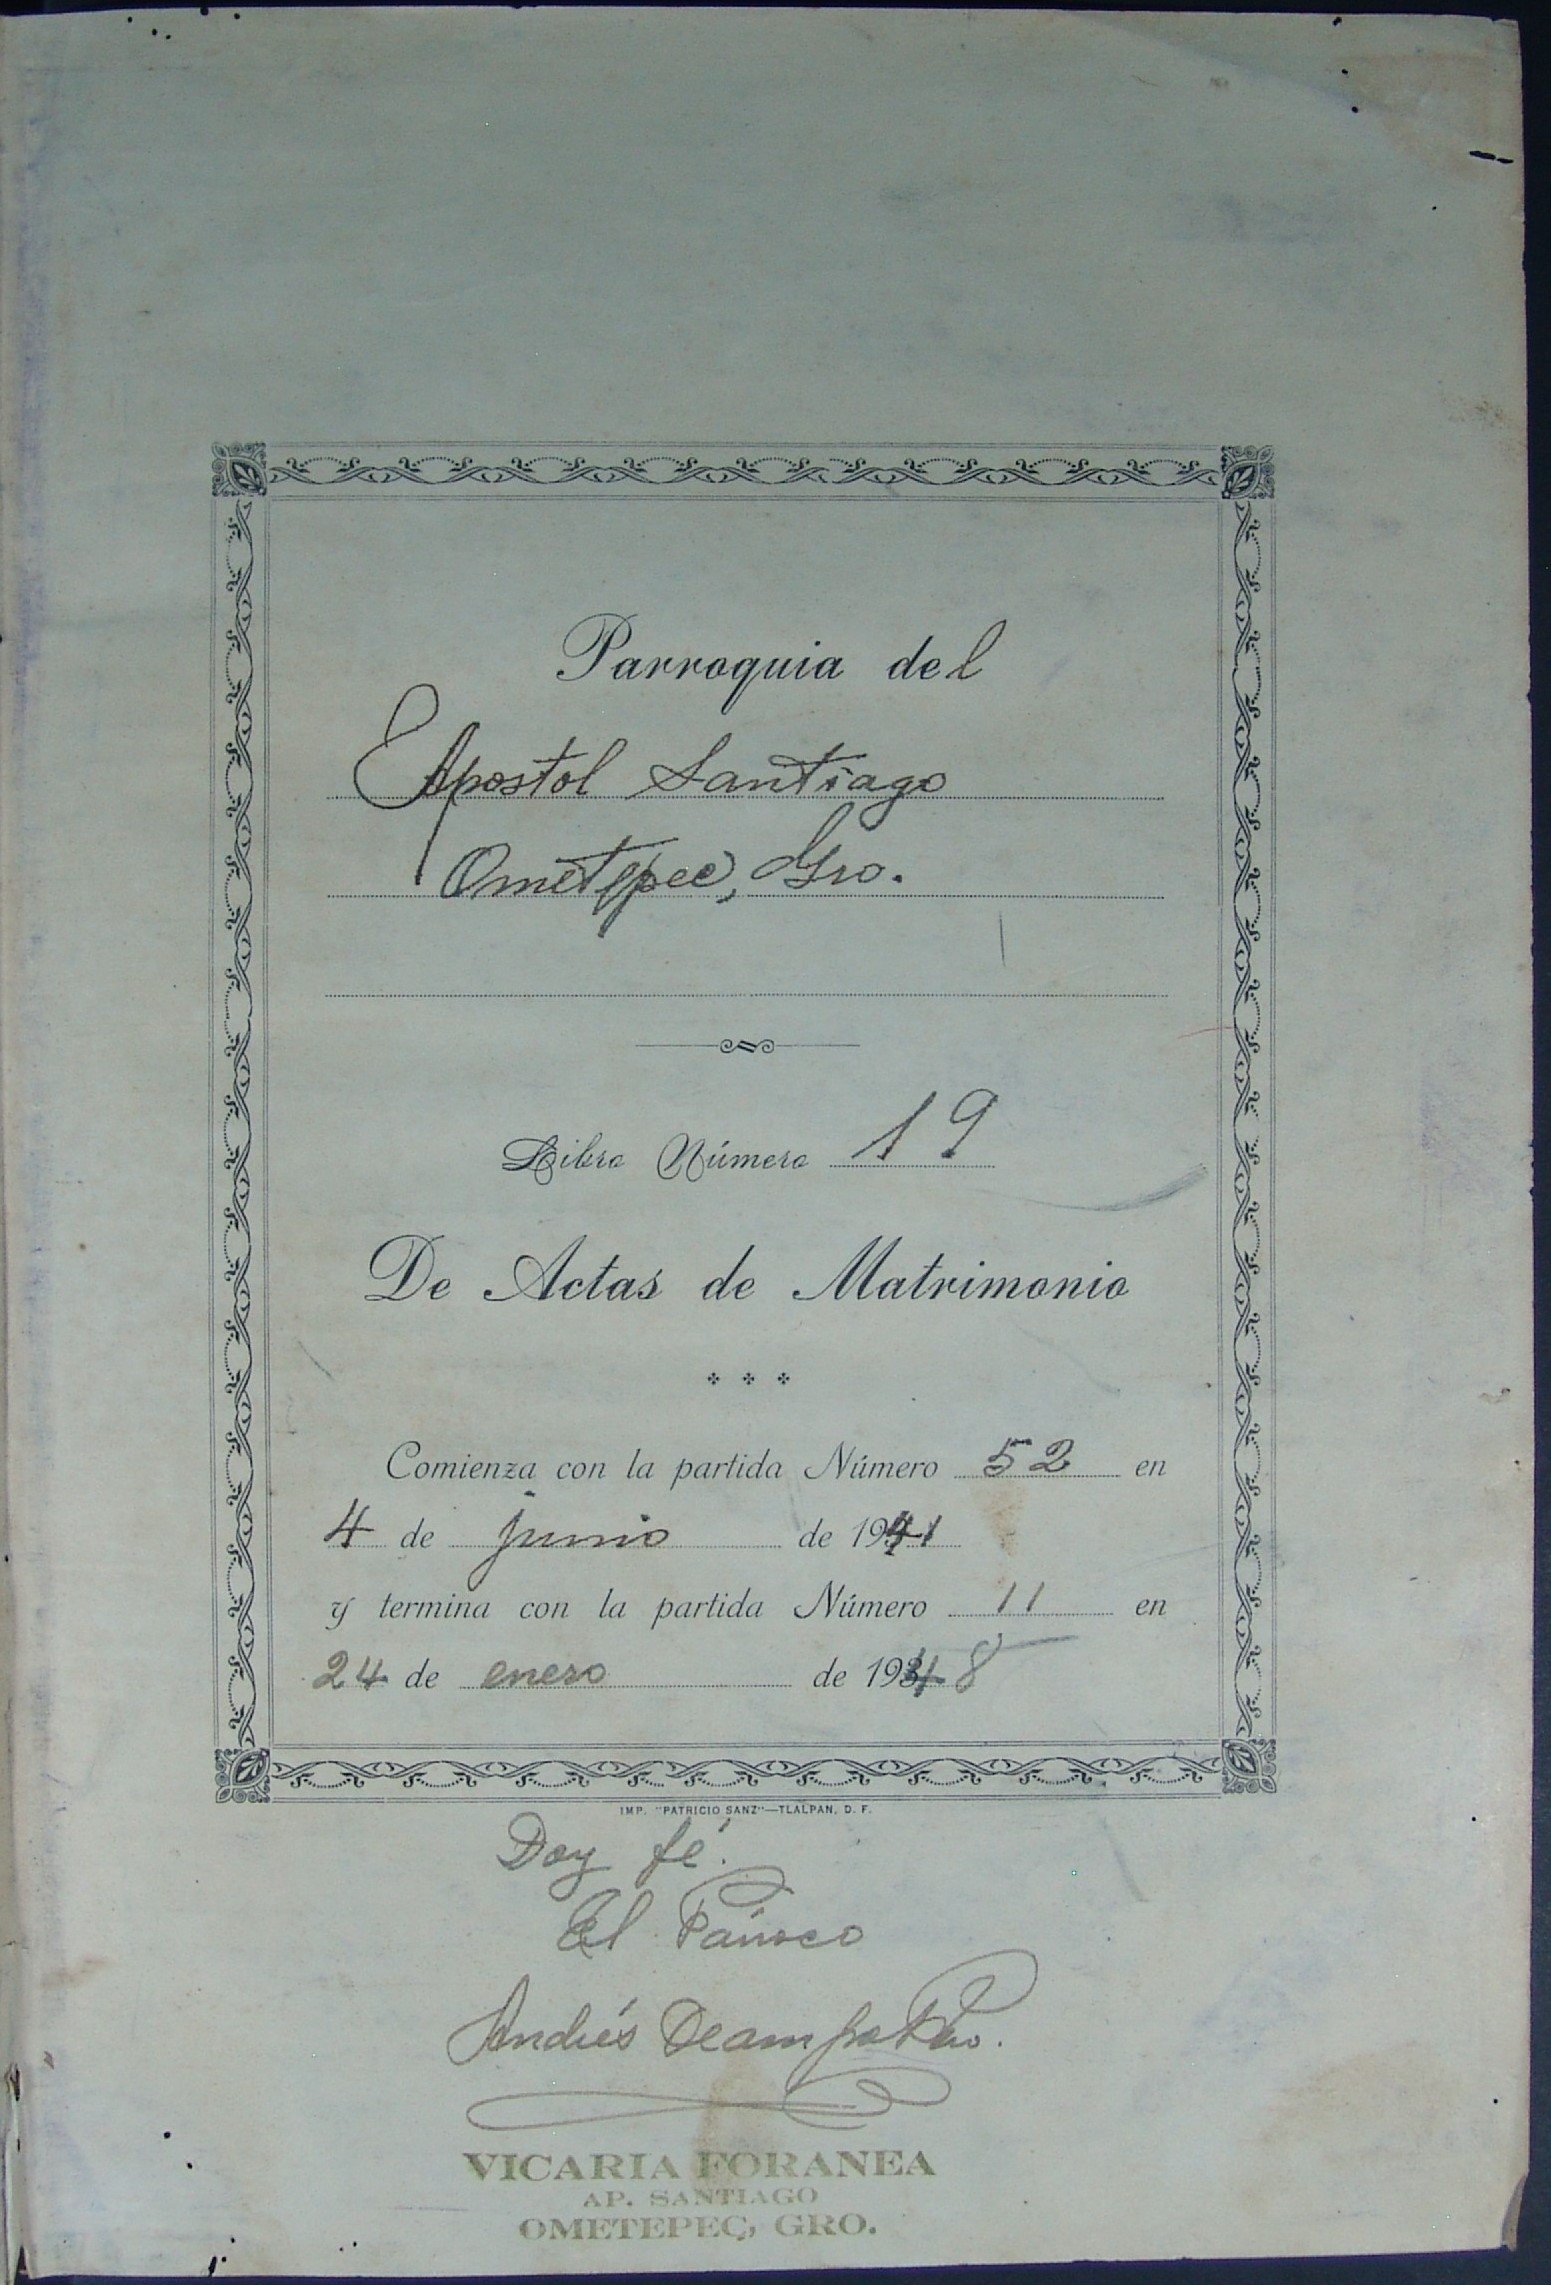 Parroquia del
Apostol Santiago
Ometepec, Gro.
Libro Número 19
De Actas de Matrimonio
Comienza con la partida Número 52 en
4 de junio de 1941
y termina con la partida Número 11 en
24 de enero de 1948
IMP. "PATRICIO SANZ"—TLALPAN, D. F.
Doy fé.
El Párroco
Andrés
VICARIA FORANEA
AP. SANTIAGO
OMETEPEC, GRO.